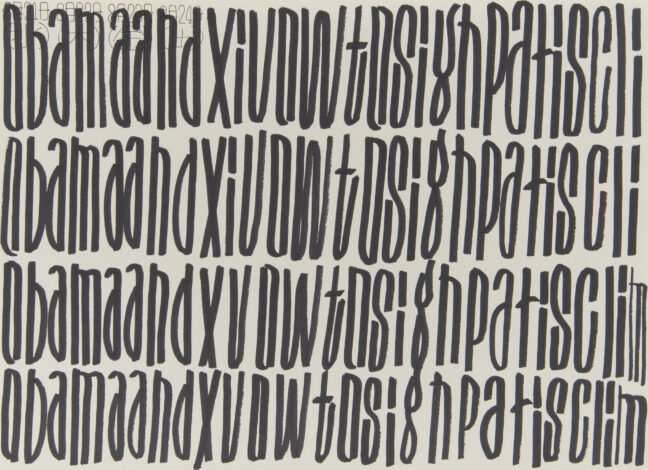 obamaandxivowtosignpariscli
obamaandxivowtosignpariscli
obamaandxvowtosignparisclim
obamaandxvowtosignparisclim